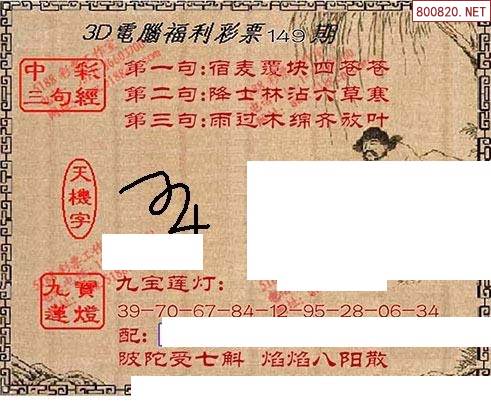 800820.NET
3D電腦福利彩票149期
中彩三句經
第一句:宿麦覆块四苍苍
第二句:降士林沾六草寒
第三句:雨过木绵齐放叶
天機字
九寶蓮燈
九宝莲灯:
39-70-67-84-12-95-28-06-34
配:
陂陀受七斛 焰焰八阳散